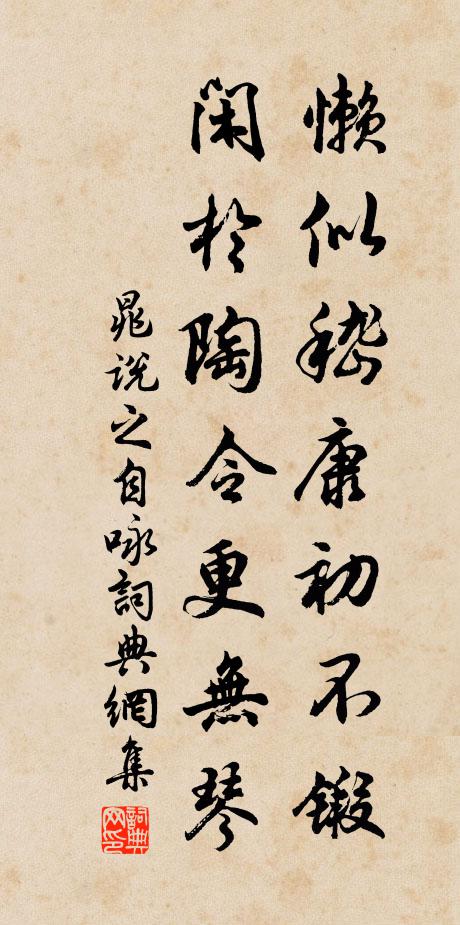 懶似嵇康初不鍛
閑於陶令更無琴
晁說之自咏詞典網集
詞典網印